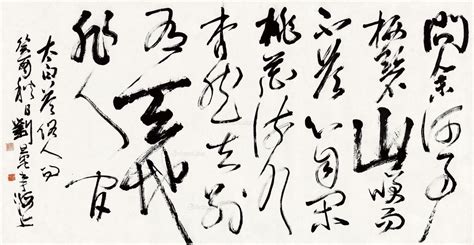 問余何事
栖碧山咲而
不答心自閑
桃花流水
杳然去別
有天地
非人間
太白答俗人問
癸酉秋日劉